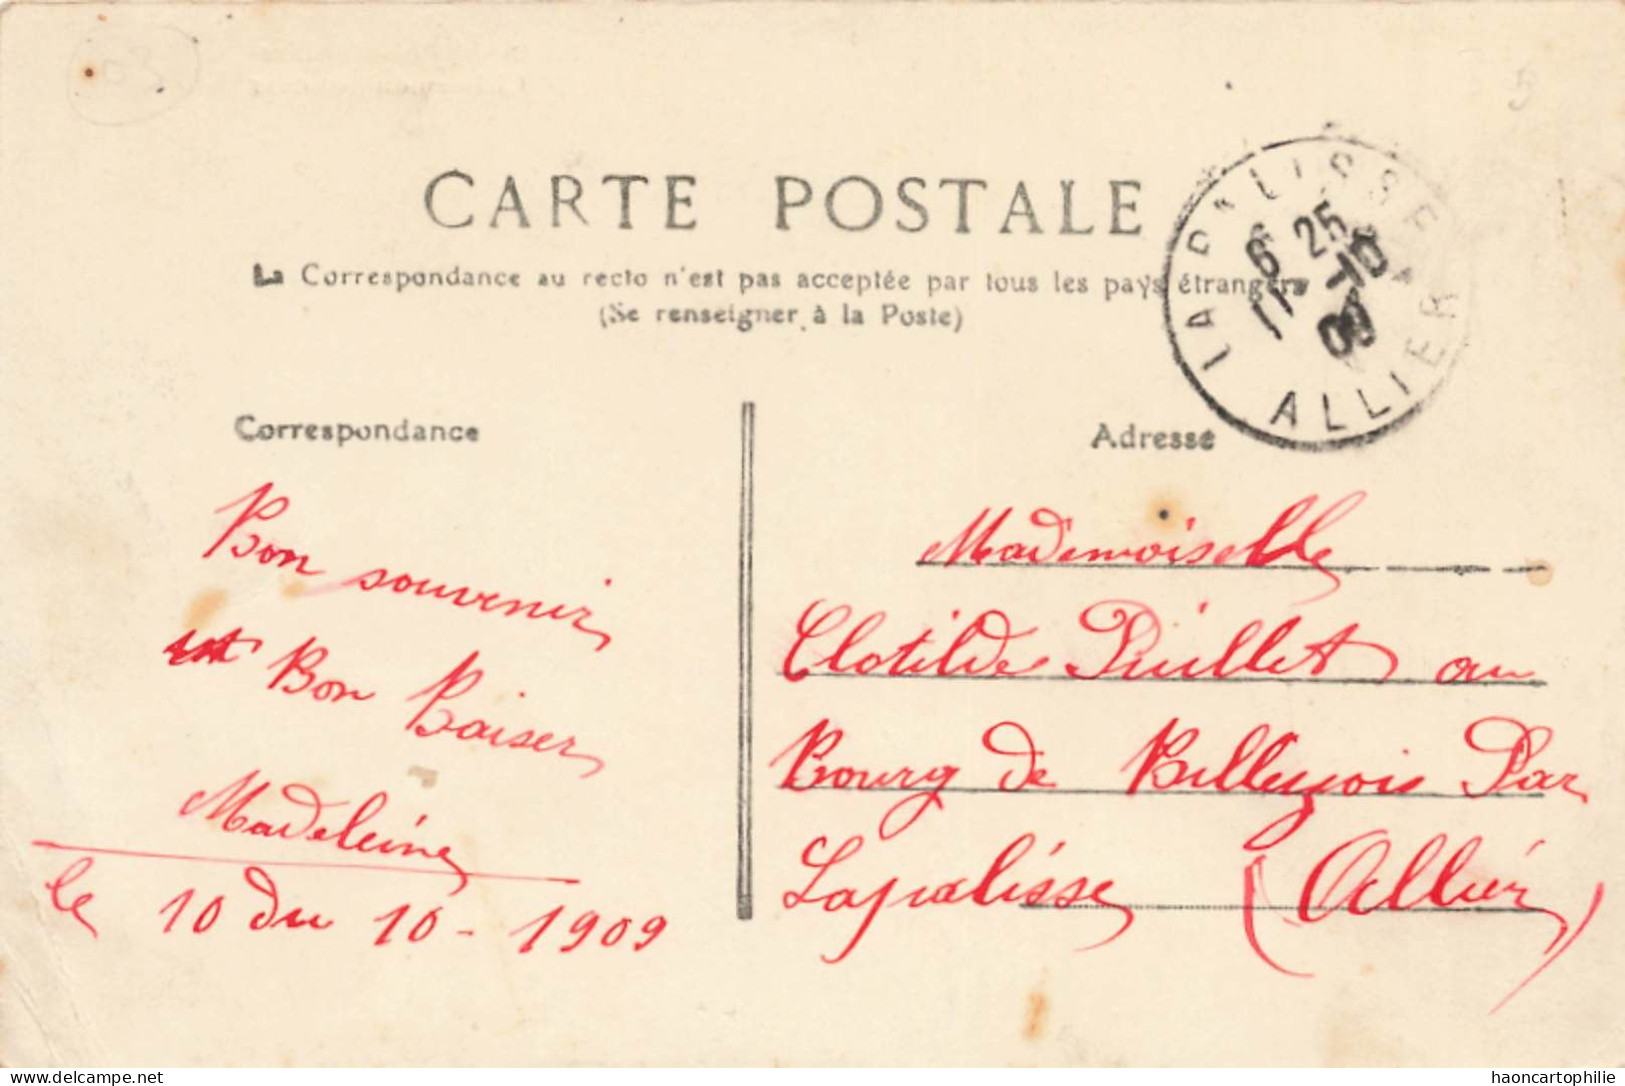 CARTE POSTALE
La Correspondance au recto n'est pas acceptée par tous les pays étrangers
(Se renseigner à la Poste)
LAPALISSE
6 25
11 -10
09
ALLIER
Correspondance
Bon souvenir
et Bon Baiser
Madeleine
le 10 du 10 - 1909
Adresse
Mademoiselle
Clotilde Puillet au
Bourg de Billezois Par
Lapalisse (Allier)
haoncartophilie